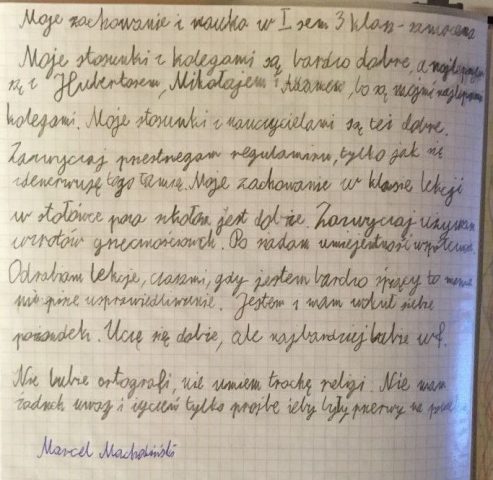 Moje zachowanie i nauka w I sem 3 klas - samocena
Moje stosunki z kolegami są bardzo dobre, a najlepsze
są z Hubertosem, Mikołajem i Adamem, bo są moimi najlepszymi
kolegami. Moje stosunki z nauczycielami są też dobre.
Zazwyczaj przestrzegam regulaminu, tylko jak się
zdenerwuję to go łamię. Moje zachowanie w klasie lekcji
w stołówce poza szkołom jest dobże. Zazwyczaj używam
zwrotów grzecznościowych. Po siadam umiejentność
Odrabiam lekcje, czasmi, gdy jestem bardzo śpiący to mama
mi pisze usprawiedliwanie. Jestem i mam wokuł siebie
pożondek. Uczę się dobże, ale najbardziej lubie wf.
Nie lubie ortografi, nie umiem trochę religi. Nie mam
żadnch uwag i życzeń tylko projbe żeby były przerwy na
Marcel